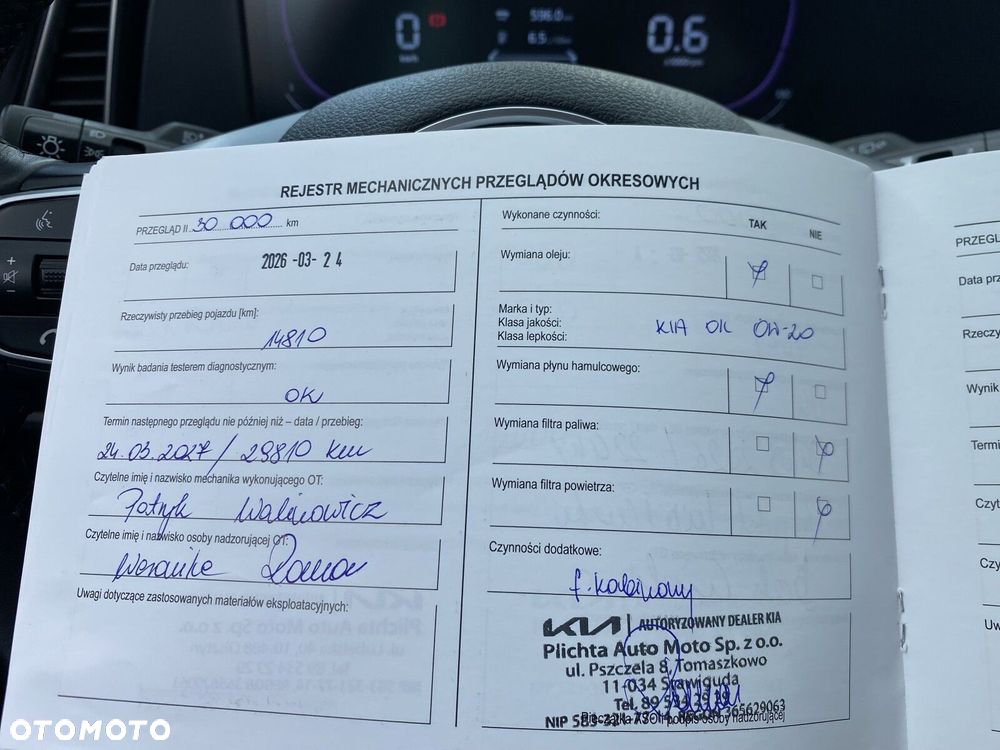 0
km/h
596.0 km
6.5
0.6
x1000rpm
REJESTR MECHANICZNYCH PRZEGLĄDÓW OKRESOWYCH
PRZEGLĄD II 30 000 km
Data przeglądu: 2026-03-24
Rzeczywisty przebieg pojazdu [km]:
14810
Wynik badania testerem diagnostycznym:
OK
Termin następnego przeglądu nie później niż – data / przebieg:
24.03.2027 / 29810 km
Czytelne imię i nazwisko mechanika wykonującego OT:
Patryk
Czytelne imię i nazwisko osoby nadzorującej OT:
Weronika
Uwagi dotyczące zastosowanych materiałów eksploatacyjnych:
Wykonane czynności:
TAK NIE
Wymiana oleju:
Marka i typ:
Klasa jakości:
Klasa lepkości:
KIA OIL 0W-20
Wymiana płynu hamulcowego:
Wymiana filtra paliwa:
Wymiana filtra powietrza:
Czynności dodatkowe:
f. kabinowy
KIA | AUTORYZOWANY DEALER KIA
Plichta Auto Moto Sp. z o.o.
ul. Pszczela 8, Tomaszkowo
11-034 Stawiguda
Tel. 89 534
NIP 583-321-77-14, REGON 365629063
Pieczątka ASO i podpis osoby nadzorującej
PRZEGL
Data prz
Rzeczy
Wynik
Termi
Czyt
Czy
Uw
OTOMOTO